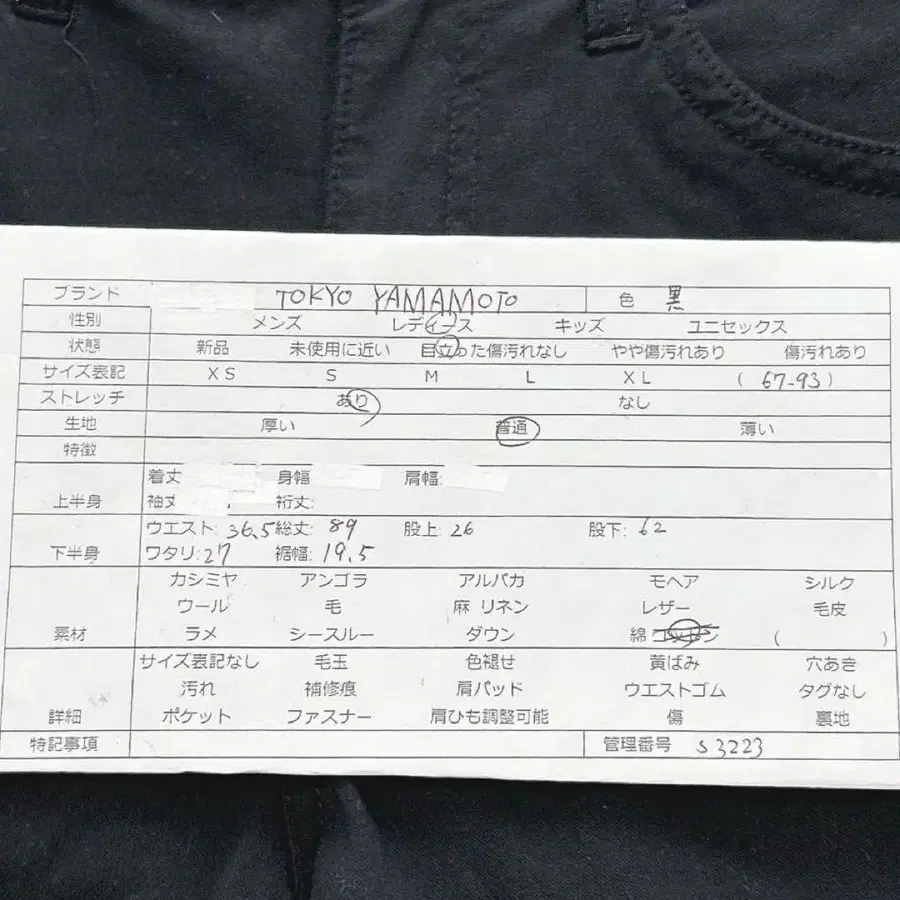 ブランド TOKYO YAMAMOTO 色 黒
性別 メンズ レディース キッズ ユニセックス
状態 新品 未使用に近い 目立った傷汚れなし やや傷汚れあり 傷汚れあり
サイズ表記 XS S M L XL (67-93)
ストレッチ あり なし
生地 厚い 普通 薄い
特徴
着丈 身幅 肩幅:
上半身 袖丈 裄丈:
ウエスト: 36.5 総丈: 89 股上: 26 股下: 62
下半身 ワタリ: 27 裾幅: 19.5
カシミヤ アンゴラ アルパカ モヘア シルク
ウール 毛 麻 リネン レザー 毛皮
素材 ラメ シースルー ダウン 綿 コットン ( )
サイズ表記なし 毛玉 色褪せ 黄ばみ 穴あき
汚れ 補修痕 肩パッド ウエストゴム タグなし
詳細 ポケット ファスナー 肩ひも調整可能 傷 裏地
特記事項 管理番号 S3223